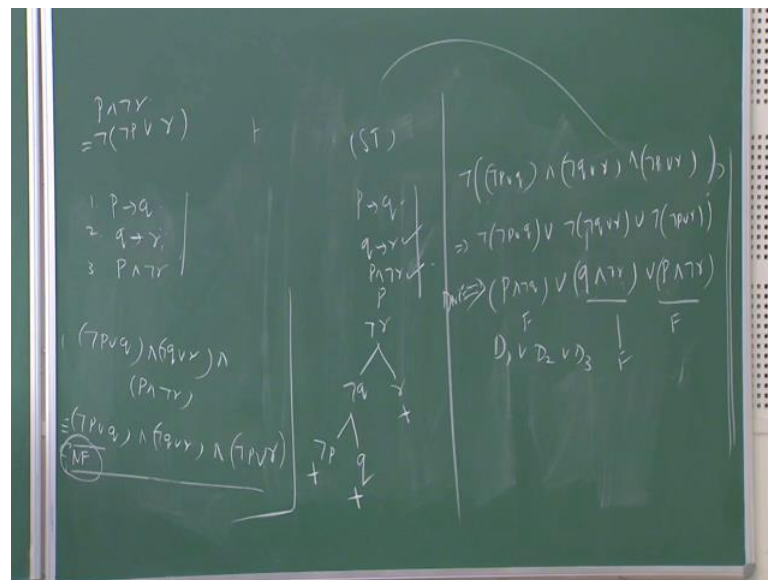 P∧¬r
=¬(¬P∨r)
1. P→q
2. q→r
3. P∧¬r
(¬P∨q)∧(¬q∨r)∧
(P∧¬r)
≡(¬P∨q)∧(¬q∨r)∧(¬P∨r)
NF
(ST)
P→q
q→r ✓
P∧¬r ✓
P
¬r
¬q r
+
¬P q
+
+
¬((¬P∨q)∧(¬q∨r)∧(¬P∨r))
=> ¬(¬P∨q)∨¬(¬q∨r)∨¬(¬P∨r)
(P∧¬q)∨(q∧¬r)∨(P∧¬r)
F F
D₁∨D₂∨D₃ F